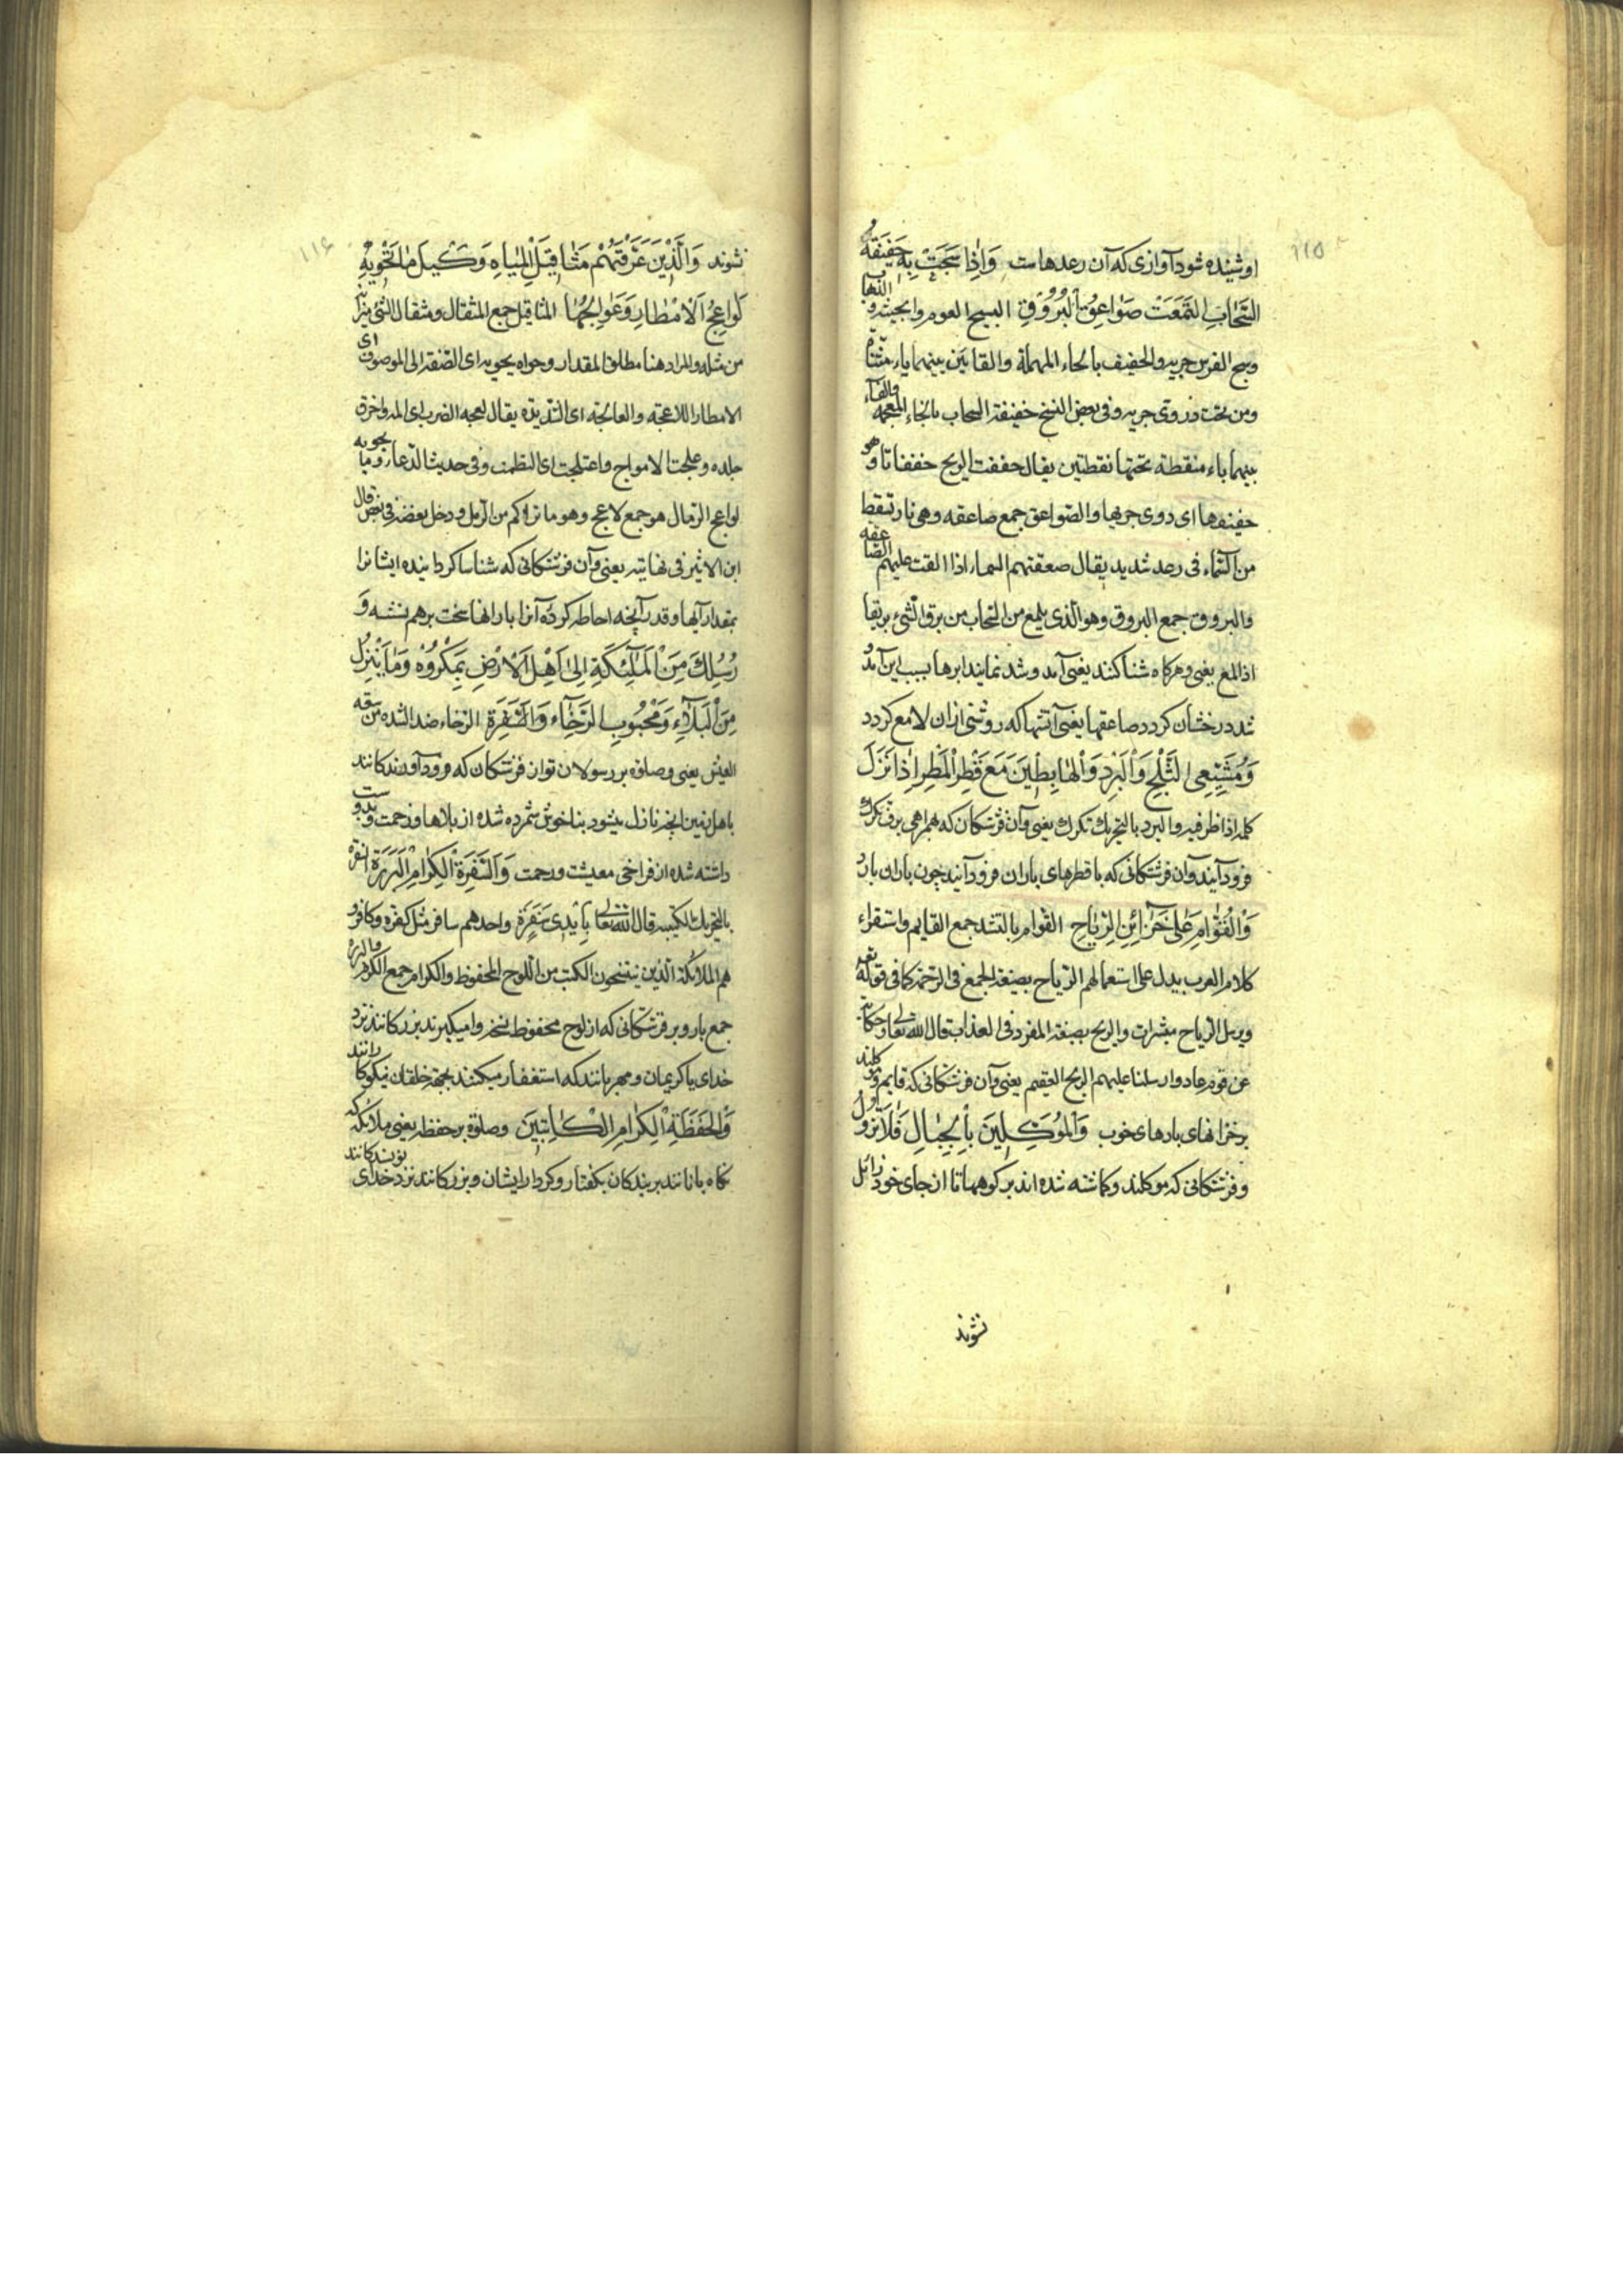 ۱۱۵
او شینده شود آوازی که آن رعدهاست وَاِذَا سَبَحَتْ بِهِ حَفِيفَةُ
السَّحَابِ الْتَمَعَتْ صَوَاعِقُ الْبُرُوقِ السبح العوم والجیئه و الذهاب
وسبح الفرس جریه والحفیف بالحاء المهملة والفایین بینهما یاء مثناة
ومن تحت دوی جریه وفی بعض النسخ خفیفة السحاب بالخاء المعجمه والفاء
بینهما یاء منقطة تحتها نقطتین یقال خفقت الریح خفقانا وهو
حفیفها ای دوی جریها والصواعق جمع صاعقه وهی نار تسقط
من السماء فی رعد شدید یقال صعقتهم السماء اذا القت علیهم الصاعقه
والبروق جمع البرق وهو الذی یلمع من السحاب من برق الشیء بریقا
اذا لمع یعنی وهرکاه شنا کنند یعنی آمد وشد نمایند ابرها بسبب این آمد و
شد درخشان کردد صاعقها یعنی آتشها که روشنی ازان لامع کردد
وَمُشَيِّعِي الثَّلْجِ وَالْبَرَدِ وَالْهَابِطِينَ مَعَ قَطْرِ الْمَطَرِ اِذَا نَزَلَ
کلمه اذا ظرفیه والبرد بالتحریک تکرک یعنی وآن فرشتکان که همراهی برف تکرک
فرود آیند وآن فرشتکانی که با قطرهای باران فرود آیند چون باران بارد
وَالْقُوَّامِ عَلَى خَزَائِنِ الرِّيَاحِ القوام بالتشد جمع القایم واستقراء
کلام العرب یدل علی استعمالهم الریاح بصیغة الجمع فی الرحمة کما فی قوله تعه
ویرسل الریاح مبشرات والریح بصیغة المفرد فی العذاب قال الله تعالی حکایة
عن قوم عاد وارسلنا علیهم الریح العقیم یعنی وآن فرشتکانی که قایم و موکلند
بر خزانهای بادهای خوب وَالْمُوَكَّلِينَ بِالْجِبَالِ فَلَا تَزُولُ
وفرشتکانی که موکلند وکماشته شده اند بر کوهها تا از جای خود زائل
نشوند
۱۱۶
نشوند وَالَّذِينَ عَرَّفْتَهُمْ مَثَاقِيلَ الْمِيَاهِ وَكَيْلَ مَا تَحْوِيهِ
لَوَاعِجُ الْاَمْطَارِ وَعَوَالِجُهَا المثاقیل جمع المثقال ومثقال الشیء میزانه
من مثله والمراد هنا مطلق المقدار وحواه یحویه ای الصفة الی الموصوف ای
الامطار اللاعجه والعالجة ای الشدیدة یقال لعجه الضرب ای المه واحرق
جلده وعلجت الامواج واعتلجت ای التطمت وفی حدیث الدعاء وما یحویه
لواعج الرمال هو جمع لاعج وهو ما تراکم من الرمل ودخل بعضه فی بعض قال
ابن الاثیر فی نهایته یعنی وآن فرشتکانی که شناسا کردانیده ایشانرا
بمقدار آبها وقدر آنچه احاطه کرده آنرا بارانها سخت برهم نشسه وَ
رُسُلِكَ مِنَ الْمَلَائِكَةِ اِلَى اَهْلِ الْاَرْضِ بِمَكْرُوهِ مَا يَنْزِلُ
مِنَ الْبَلَاءِ وَمَحْبُوبِ الرَّخَاءِ وَالسَّفَرَةِ الرخاء ضد الشده من سعة
العیش یعنی وصلوة بر رسولان تو ان فرشتکان که فرود آورندکانند
باهل زمین انچه نازل میشود بناخوش شمرده شده از بلاها وزحمت و بدوست
داشته شده از فراخی معیشت ورحمت وَالسَّفَرَةِ الْكِرَامِ الْبَرَرَةِ السفرة
بالتحریک الکتبه قال الله تعالی بِاَيْدِي سَفَرَةٍ واحدهم سافر مثل کفره وکافر و
هم الملائکة الذین ینتسخون الکتب من اللوح المحفوظ والکرام جمع الکریم والبررة
جمع بار وبر فرشتکانی که از لوح محفوظ نسخه وامیکیرند بزرکانند نزد
خدای یا کریمان ومهربانند که استغفار میکنند بجهة خلقان نیکوکارانند
وَالْحَفَظَةِ الْكِرَامِ الْكَاتِبِينَ وصلوة بر حفظه یعنی ملائکه که
نکاه بانانند بر بندکان بکفتار وکردار ایشان وبزرکانند نزد خدای نویسندکانند